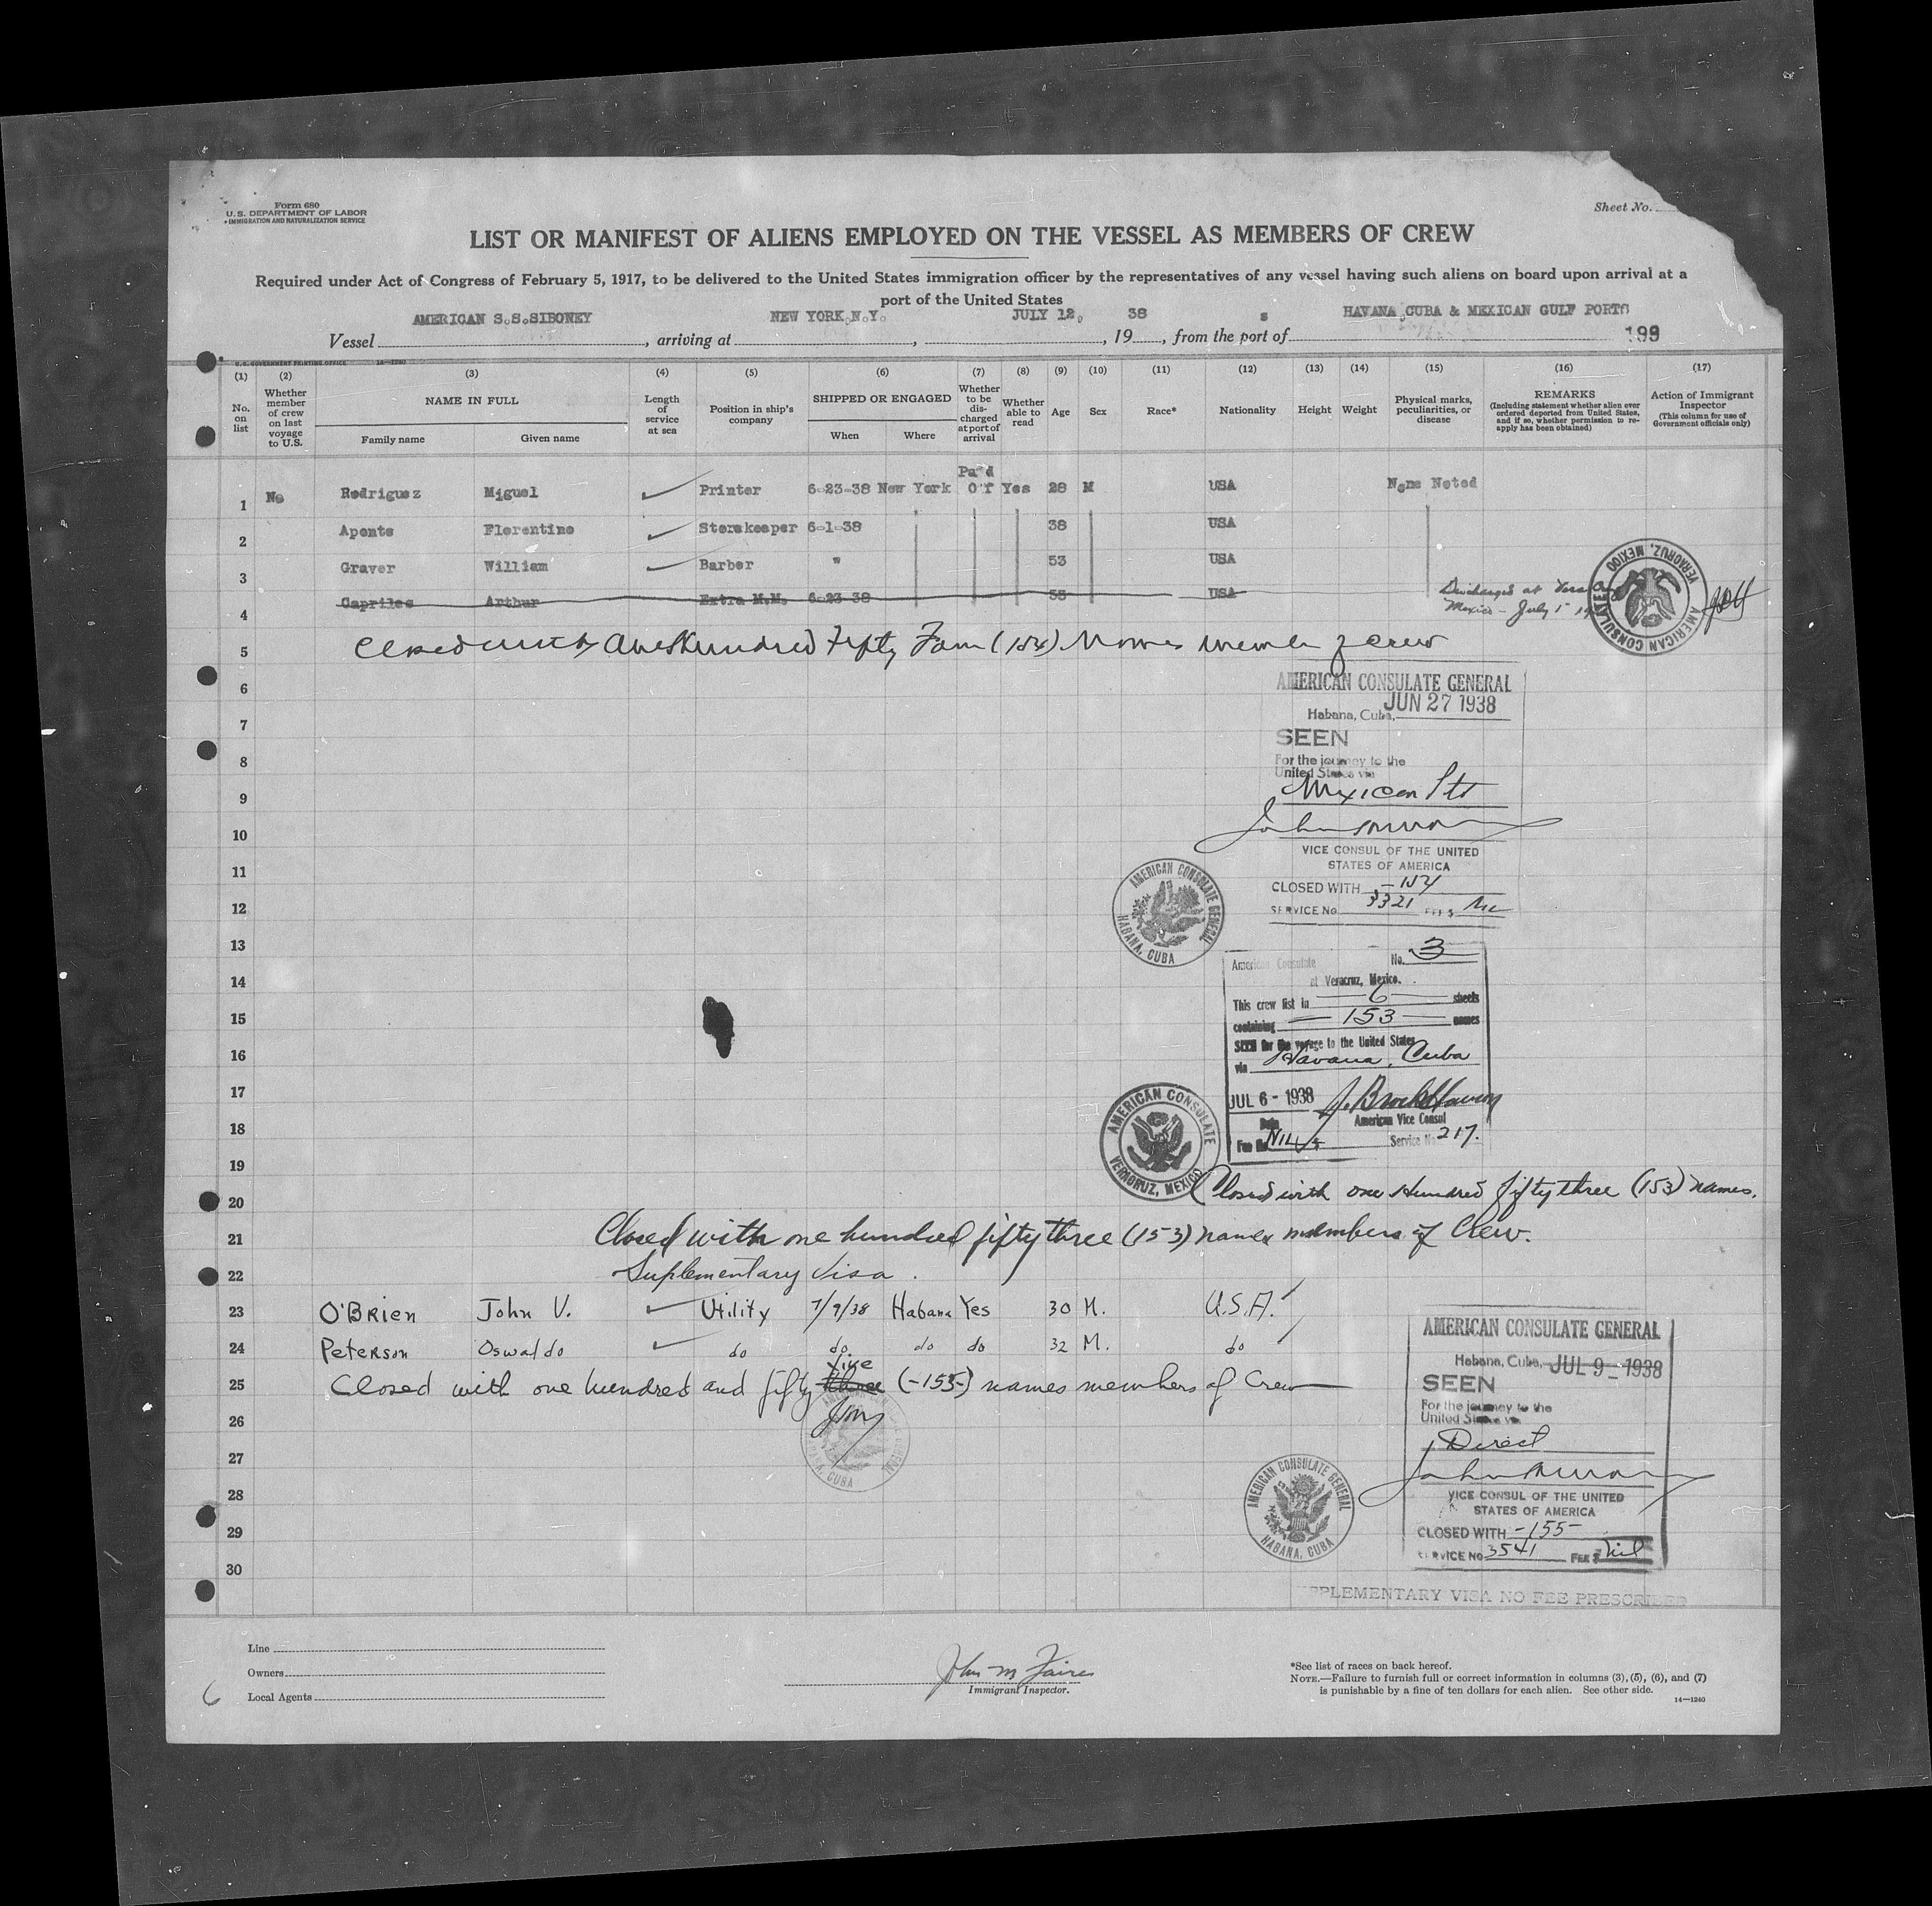 Form 680
U. S. DEPARTMENT OF LABOR
IMMIGRATION AND NATURALIZATION SERVICE
Sheet No.
LIST OR MANIFEST OF ALIENS EMPLOYED ON THE VESSEL AS MEMBERS OF CREW
Required under Act of Congress of February 5, 1917, to be delivered to the United States immigration officer by the representatives of any vessel having such aliens on board upon arrival at a
port of the United States
Vessel AMERICAN S.S.SIBONEY, arriving at NEW YORK,N.Y., JULY 12, 1938, from the port of s HAVANA,CUBA & MEXICAN GULF PORTS
199
U.S. GOVERNMENT PRINTING OFFICE 14—1240
(1) (2) (3) (4) (5) (6) (7) (8) (9) (10) (11) (12) (13) (14) (15) (16) (17)
No. on list
Whether member of crew on last voyage to U.S.
NAME IN FULL
Family name Given name
Length of service at sea
Position in ship's company
SHIPPED OR ENGAGED
When Where
Whether to be discharged at port of arrival
Whether able to read
Age
Sex
Race*
Nationality
Height
Weight
Physical marks, peculiarities, or disease
REMARKS
(Including statement whether alien ever ordered deported from United States, and if so, whether permission to re-apply has been obtained)
Action of Immigrant Inspector
(This column for use of Government officials only)
1 No Rodriguez Miguel Printer 6-23-38 New York Paid Off Yes 28 M USA None Noted
2 Aponte Florentino Storekeeper 6-1-38 38 USA
3 Graver William Barber " 53 USA
4 Capriles Arthur Extra M.M. 6-23-38 55 USA
Discharged at Vera Cruz
Mexico - July 1
AMERICAN CONSULATE VERACRUZ, MEXICO
5 Closed with One Hundred Fifty Four (154) Names members of crew
6
7
8
9
10
11
12
13
14
15
16
17
18
19
20
AMERICAN CONSULATE GENERAL
Habana, Cuba, JUN 27 1938
SEEN
For the journey to the
United States via
Mexican Pts
VICE CONSUL OF THE UNITED
STATES OF AMERICA
CLOSED WITH -154
SERVICE No 3321 FEE $ Nil
AMERICAN CONSULATE GENERAL HABANA, CUBA
American Consulate No. 3
at Veracruz, Mexico.
This crew list in 6 sheets
containing 153 names
SEEN for the voyage to the United States
via Havana, Cuba
JUL 6 - 1938
Date American Vice Consul
Fee No Service No 217.
AMERICAN CONSULATE VERACRUZ, MEXICO
Closed with one Hundred fifty three (153) names.
21 Closed with one hundred fifty three (153) names members of Crew.
22 Suplementary Visa.
23 O'BRIEN John V. Utility 7/9/38 Habana Yes 30 M. U.S.A.
24 Peterson Oswaldo do do. do do 32 M. do
25 Closed with one hundred and fifty three five (-155-) names members of Crew
26
27
28
29
30
AMERICAN CONSULATE GENERAL
Habana, Cuba, JUL 9 - 1938
SEEN
For the journey to the
United States via
Direct
VICE CONSUL OF THE UNITED
STATES OF AMERICA
CLOSED WITH -155-
SERVICE No 3541 FEE $ Nil
AMERICAN CONSULATE GENERAL HABANA, CUBA
HABANA, CUBA
SUPPLEMENTARY VISA NO FEE PRESCRIBED
Line
Owners
Local Agents
6
John M Faires
Immigrant Inspector.
*See list of races on back hereof.
NOTE.—Failure to furnish full or correct information in columns (3), (5), (6), and (7)
is punishable by a fine of ten dollars for each alien. See other side.
14—1240